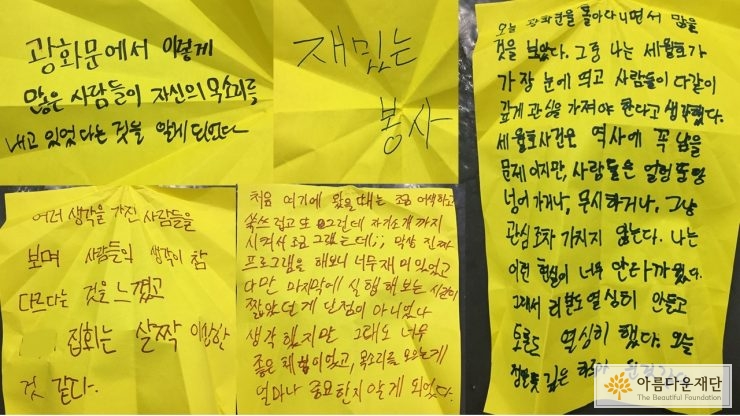 광화문에서 이렇게
많은 사람들이 자신의 목소리를
내고 있었다는 것을 알게 되었다
재밌는
봉사
오늘 광화문을 돌아다니면서 많을
것을 보았다. 그중 나는 세월호가
가장 눈에 띄고 사람들이 다같이
깊게 관심을 가져야 한다고 생각했다.
세월호사건은 역사에 꼭 남을
문제이지만, 사람들은 얼렁뚱땅
넘어가거나, 무시하거나, 그냥
관심조차 가지지 않는다. 나는
이런 현실이 너무 안타까웠다.
그래서 리본도 열심히 만들고
토론도 열심히 했다. 오늘
정말 뜻 깊은
여러 생각을 가진 사람들을
보며 사람들의 생각이 참
다르다는 것을 느꼈고
집회는 살짝 이상한
것 같다.
처음 여기에 왔을 때는 조금 어색하고
쑥쓰럽고 또 그런데 자기소개까지
시켜서 조금 그랬는데;; 막상 진짜
프로그램을 해보니 너무 재미있었고
다만 마지막에 실험해보는 시간이
짧았던 게 단점이 아니었나
생각했지만 그래도 너무
좋은 체험이었고, 목소리를 모으는게
얼마나 중요한지 알게 되었다.
아름다운재단
The Beautiful Foundation